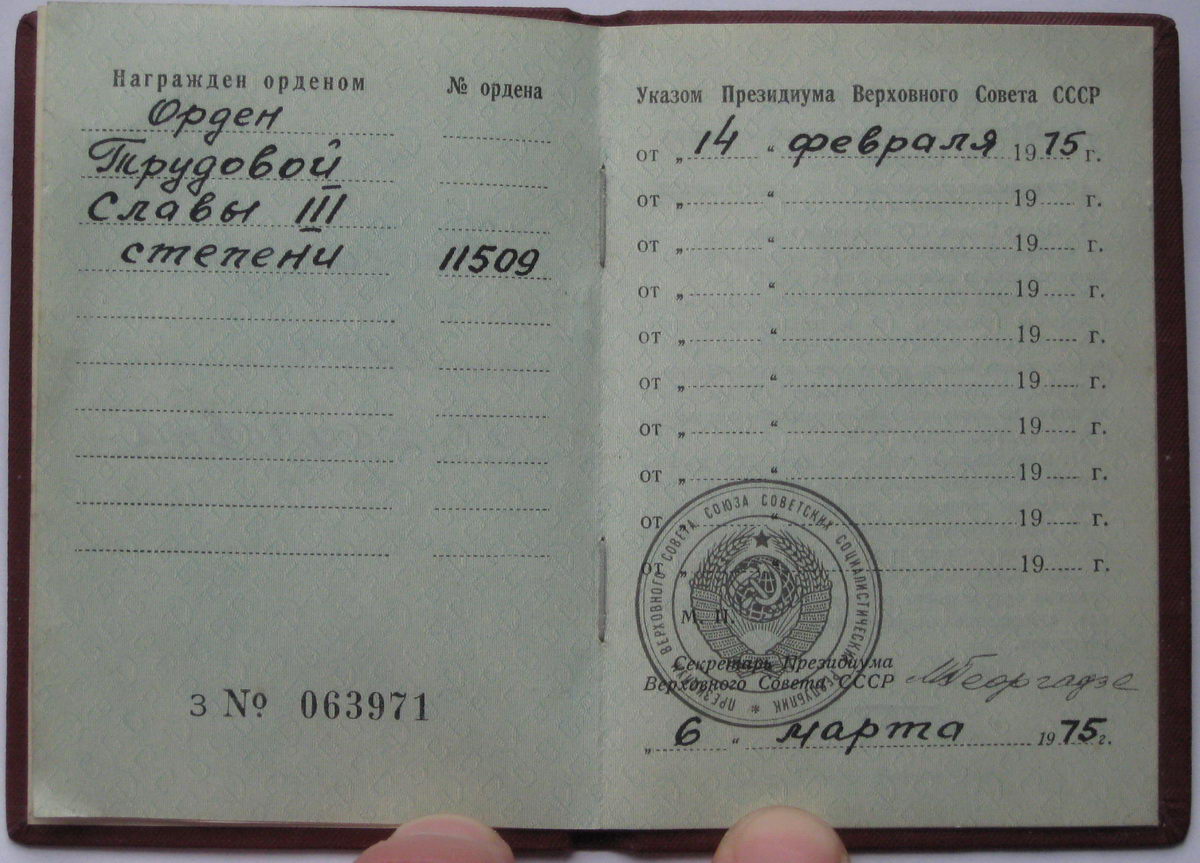 Награжден орденом
№ ордена
Орден
Трудовой
Славы III
степени
11509
З № 063971
Указом Президиума Верховного Совета СССР
от „ 14 “ февраля 1975 г.
от „ “ 19 г.
от „ “ 19 г.
от „ “ 19 г.
от „ “ 19 г.
от „ “ 19 г.
от „ “ 19 г.
от „ “ 19 г.
от „ “ 19 г.
от „ “ 19 г.
ПРЕЗИДИУМ ВЕРХОВНОГО СОВЕТА СОЮЗА СОВЕТСКИХ СОЦИАЛИСТИЧЕСКИХ РЕСПУБЛИК *
М. П.
Секретарь Президиума
Верховного Совета СССР МГеоргадзе
„ 6 “ марта 1975 г.